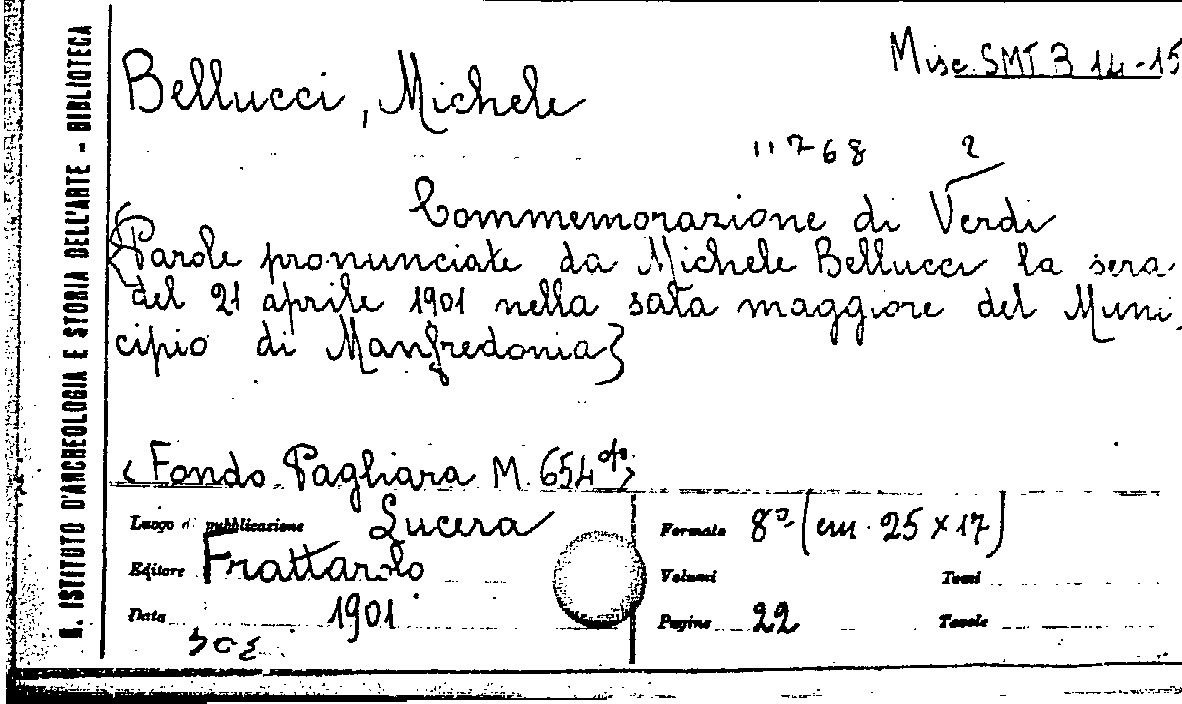 R. ISTITUTO D'ARCHEOLOGIA E STORIA DELL'ARTE - BIBLIOTECA
Misc. SMT B 14-15
Bellucci, Michele
11768 2
Commemorazione di Verdi
{Parole pronunciate da Michele Bellucci la sera
del 21 aprile 1901 nella sala maggiore del Muni-
cipio di Manfredonia}
(Fondo Pagliara M. 654
Luogo di pubblicazione Lucera
Formato 8º (cm. 25 x 17)
Editore Frattarolo
Volumi Tomi
Data 1901
Pagine 22 Tavole